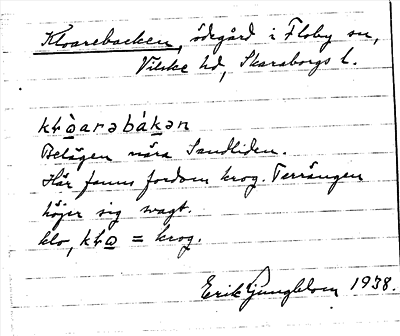 Kloarebacken, ödegård i Floby sn,
Vilske hd, Skaraborgs l.
kɬòarəbákən
Belägen nära Sandliden.
Här fanns fordom krog. Terrängen
höjer sig svagt.
klo, kɬo = krog.
Erik Ljungblom 1938.